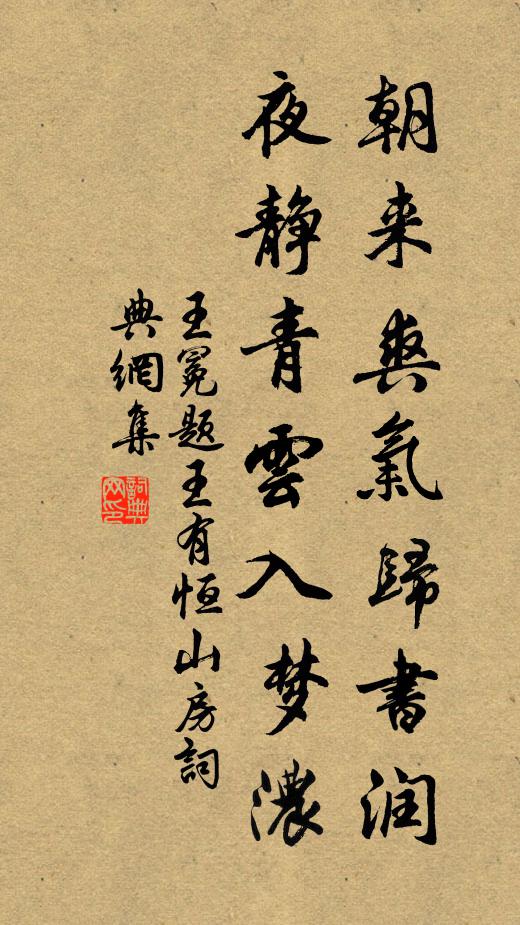 朝来爽氣歸書润
夜静青雲入梦濃
王冕題王有恒山房詞
典網集
詞典网印